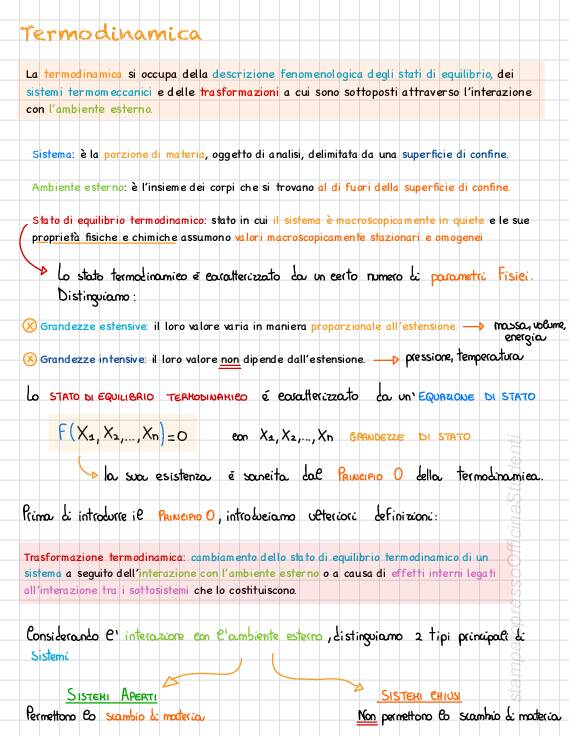 Termodinamica
La termodinamica si occupa della descrizione fenomenologica degli stati di equilibrio, dei
sistemi termomeccanici e delle trasformazioni a cui sono sottoposti attraverso l'interazione
con l'ambiente esterno.
Sistema: è la porzione di materia, oggetto di analisi, delimitata da una superficie di confine.
Ambiente esterno: è l'insieme dei corpi che si trovano al di fuori della superficie di confine.
Stato di equilibrio termodinamico: stato in cui il sistema è macroscopicamente in quiete e le sue
proprietà fisiche e chimiche assumono valori macroscopicamente stazionari e omogenei
Lo stato termodinamico é caratterizzato da un certo numero di parametri Fisici.
Distinguiamo:
Grandezze estensive: il loro valore varia in maniera proporzionale all'estensione. → massa, volume,
energia
Grandezze intensive: il loro valore non dipende dall'estensione. → pressione, temperatura
Lo STATO DI EQUILIBRIO TERMODINAMICO é caratterizzato da un' EQUAZIONE DI STATO
F(X1, X2,..., Xn)=0 con X1, X2,..., Xn GRANDEZZE DI STATO
la sua esistenza é sancita dal PRINCIPIO 0 della termodinamica.
Prima di introdurre il PRINCIPIO 0, introduciamo ulteriori definizioni:
Trasformazione termodinamica: cambiamento dello stato di equilibrio termodinamico di un
sistema a seguito dell'interazione con l'ambiente esterno o a causa di effetti interni legati
all'interazione tra i sottosistemi che lo costituiscono.
Considerando l'interazione con l'ambiente esterno, distinguiamo 2 tipi principali di
Sistemi
SISTEMI APERTI SISTEMI CHIUSI
Permettono lo scambio di materia Non permettono lo scambio di materia
stampatopressoOfficinaStudenti